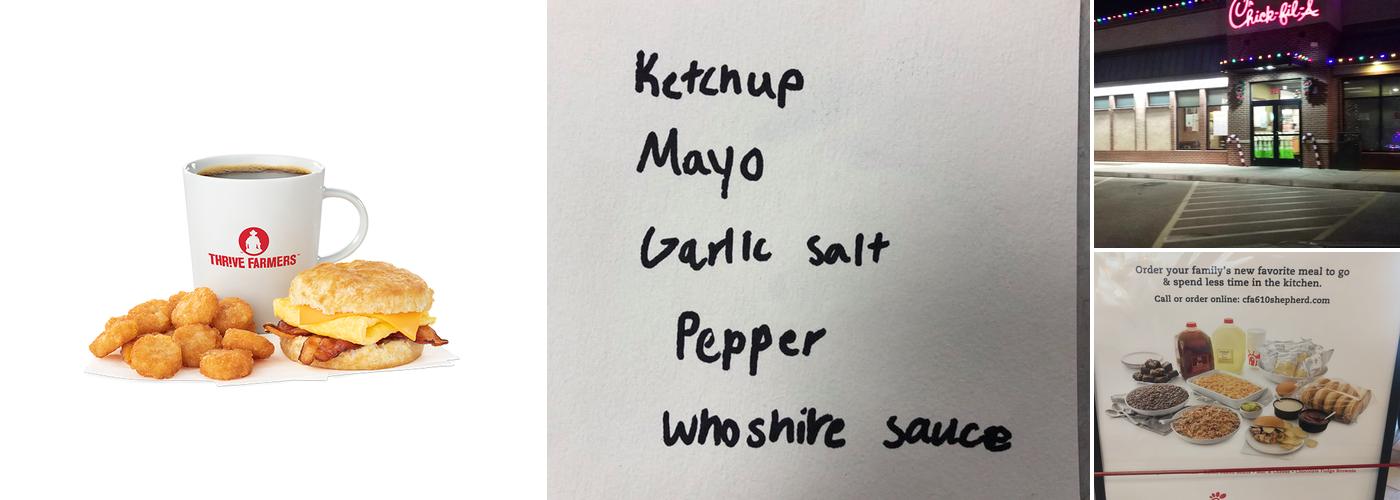 THRIVE FARMERS
Ketchup
Mayo
Garlic salt
Pepper
Whoshire sauce
Chick-fil-A
Order your family's new favorite meal to go
& spend less time in the kitchen.
Call or order online: cfa610shepherd.com
Chocolate Fudge Brownie